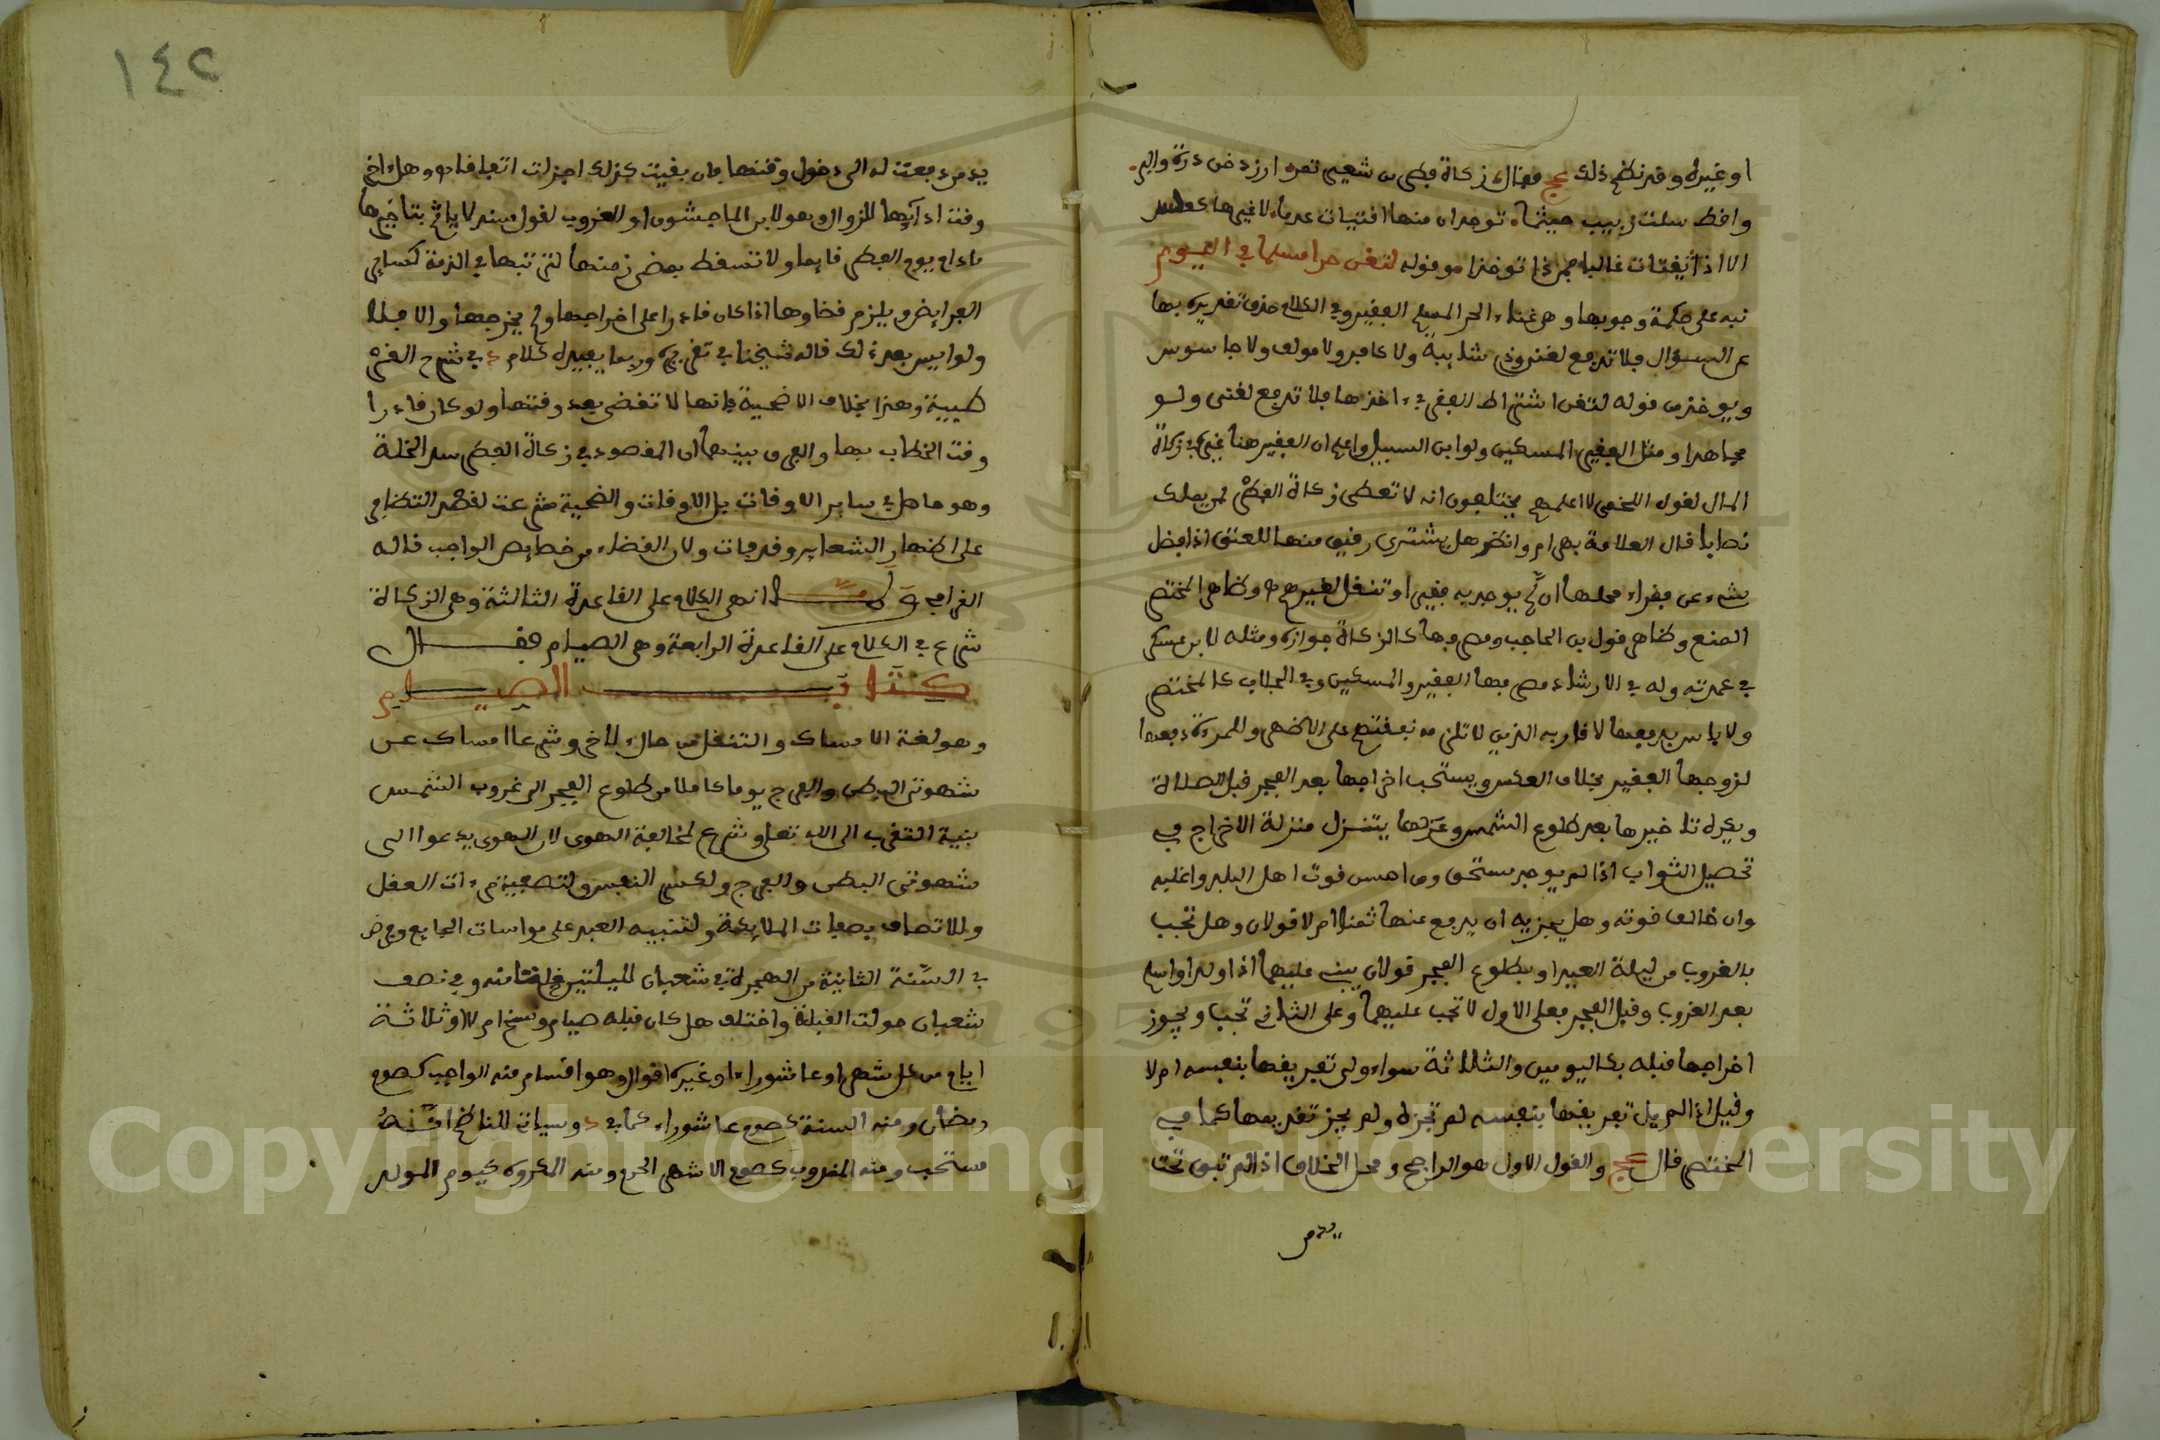 او غيره وقد نظم ذلك عج فقال زكاة فطر من شعير تمر ارز دخن ذرة والبر
واقط سلت زبيب حيثما توجد ان منها اقتيات عدما لا غيرها كعلس
الا اذا يقتات غالبا فمن ذا توخذا وقوله لتغن حرا مسلما في اليوم
نبه على حكمة وجوبها وهي غناء الحر المسلم الفقير وفي الكلام حذف تقديره بها
عن السؤال فلا تدفع لغني وذي شايبة ولا كافر ولا مولف ولا جاسوس
ويوخذ من قوله لتغن اشتراط الفقر في اخذها فلا تدفع لغني ولو
مجاهدا ومثل الفقير المسكين ولو ابن السبيل واعلم ان الفقير هنا غيره في زكاة
المال لقول اللخمي لا اعلمهم يختلفون انه لا تعطى زكاة الفطر لمن يملك
نصابا قال العلامة بهرام وانظر هل يشترى رقيق منها للعتق اذا فضل
شيء عن فقراء محلها ان لم يوجد به فقير او تنقل لغيرهم وظاهر المختصر
المنع وظاهر قول بن الحاجب ومصرفها كالزكاة جوازه ومثله لابن عسكر
في عمدته وله في الارشاد مصرفها الفقير والمسكين وفي الجلاب كالمختصر
ولا باس بدفعها لاقاربه الذين لا تلزمه نفقتهم على الاظهر وللمرءة دفعها
لزوجها الفقير بخلاف العكس ويستحب اخراجها بعد الفجر قبل الصلاة
ويكره تاخيرها بعد طلوع الشمس وعزلها يتنزل منزلة الاخراج في
تحصيل الثواب اذا لم يوجد مستحق ومن احسن قوت اهل البلد واغلبه
وان خالف قوته وهل يجزيه ان يدفع عنها ثمنا ام لا قولان وهل تجب
بالغروب من ليلة العيد او بطلوع الفجر قولان يبنى عليهما اذا ولد او اسلم
بعد الغروب وقبل الفجر فعلى الاول لا تجب عليهما وعلى الثاني تجب ويجوز
اخراجها قبله بكاليومين والثلاثة سواء ولي تفريقها بنفسه ام لا
وقيل اذا لم يل تفريقها بنفسه لم تجزه ولم يجز تقديمها كما في
المختصر قال عج والقول الاول هو الراجح ومحل الخلاف اذا لم تبق تحت
يد من
يد من دفعت له الى دخول وقتها فان بقيت كذلك اجزات اتفاقا وهل اخر
وقت ادايها للزوال وهو لابن الماجشون او للغروب لقول سند لا ياثم بتاخيرها
ما دام يوم الفطر قايما ولا تسقط بمضي زمنها لترتبها في الذمة كساير
الفرايض ويلزم قضاوها اذا كان قادرا على اخراجها ولم يخرجها والا فلا
ولو ايسر بعد ذلك قاله شيخنا في تقريره وربما يفيده كلام د في شرح القر
طبية وهذا بخلاف الاضحية فانها لا تقضى بعد وقتها ولو كان قادرا
وقت الخطاب بها والفرق بينهما ان المقصود في زكاة الفطر سد الخلة
وهو حاصل في ساير الاوقات بل الاوقات والضحية شرعت لقصد التظافر
على اظهار الشعاير وقد فات ولان القضاء من خصايص الواجب قاله
القرافي ولما انهى الكلام على القاعدة الثالثة وهي الزكاة
شرع في الكلام على القاعدة الرابعة وهي الصيام فقال
كتاب الصيام
وهو لغة الامساك والتنقل من حال لاخر وشرعا امساك عن
شهوتي البطن والفرج يوما كاملا من طلوع الفجر الى غروب الشمس
بنية التقرب الى الله تعلى وشرع لمخالفة الهوى لان الهوى يدعوا الى
شهوتي البطن والفرج ولكسر النفس ولتصفية مرءات العقل
وللاتصاف بصفات الملايكة ولتنبيه العبد على مواسات الجايع وفرض
في السنة الثانية من الهجرة في شعبان لليلتين خلتا منه وفي نصف
شعبان حولت القبلة واختلف هل كان قبله صيام ونسخ ام لا او ثلاثة
ايام من كل شهر او عاشوراء او غيره اقوال وهو اقسام منه الواجب كصوم
رمضان ومنه السنة كصوم عاشوراء كما في د وسياتي للناظم انه
مستحب ومنه المندوب كصوم الاشهر الحرم ومنه المكروه كيوم المولد
١٤٢
Copyright © King Saud University
1957